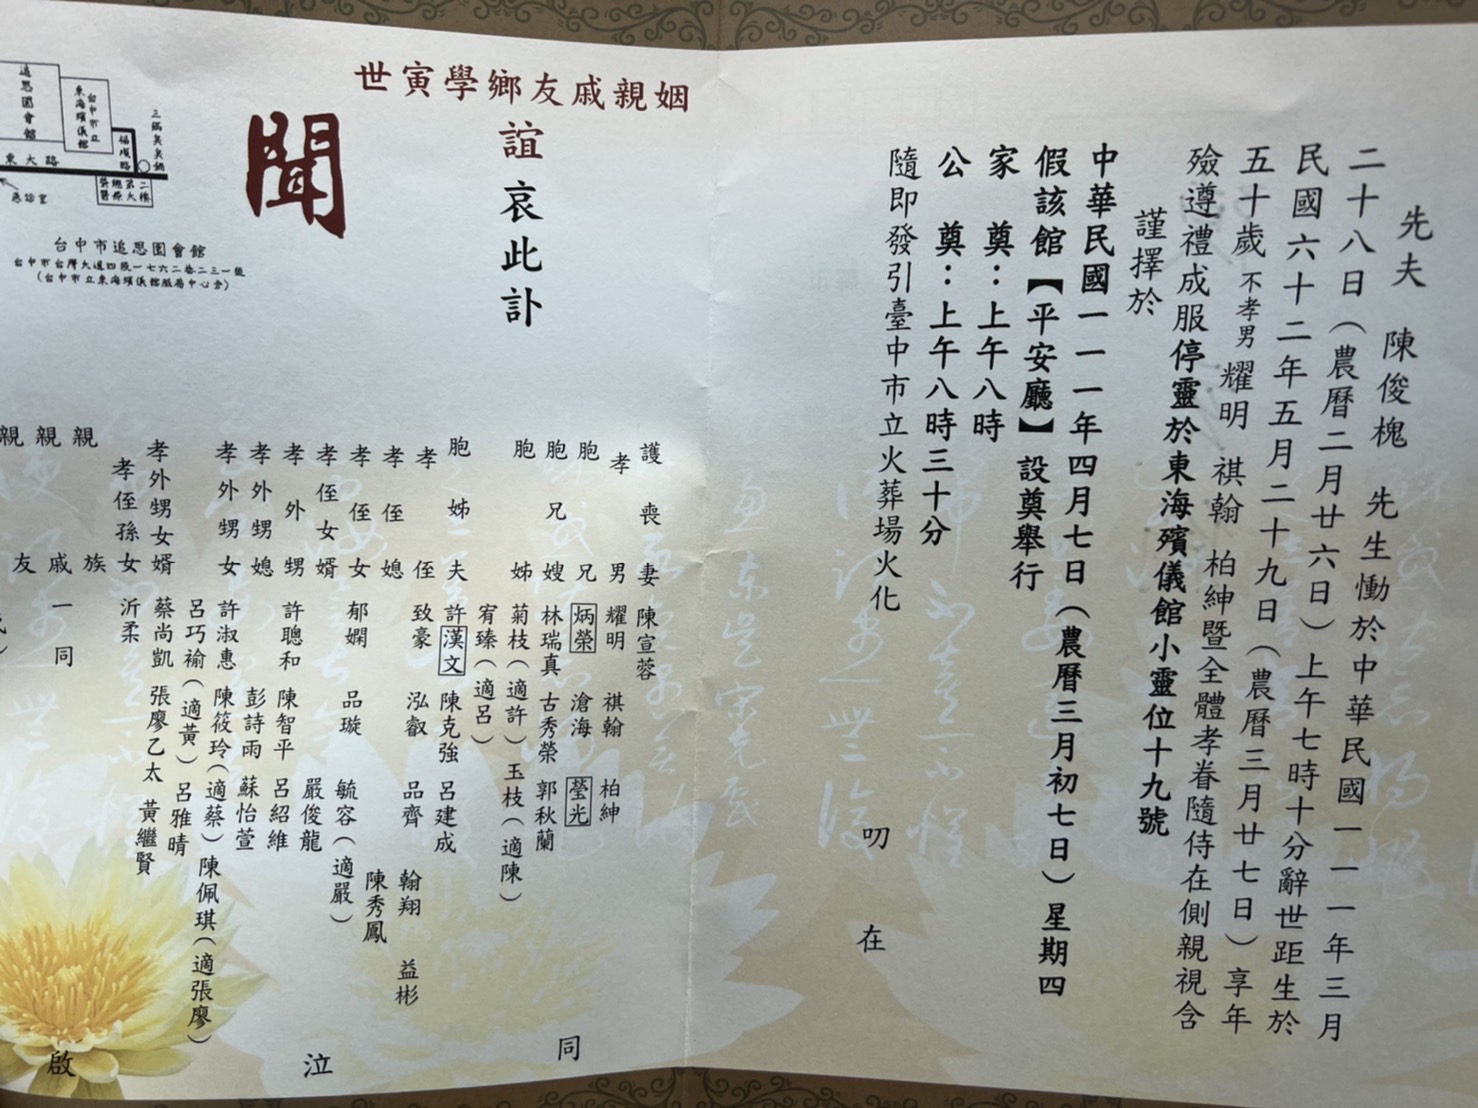 先夫 陳俊槐 先生慟於中華民國一一一年三月
二十八日（農曆二月廿六日）上午七時十分辭世距生於
民國六十二年五月二十九日（農曆三月廿七日）享年
五十歲 不孝男 耀明 祺翰 柏紳暨全體孝眷隨侍在側親視含
殮遵禮成服停靈於東海殯儀館小靈位十九號
謹擇於
中華民國一一一年四月七日（農曆三月初七日）星期四
假該館【平安廳】設奠舉行
家 奠：上午八時
公 奠：上午八時三十分
隨即發引臺中市立火葬場火化
叨 在
姻親戚友鄉學寅世
誼哀此訃
聞
護喪妻 陳宣蓉
孝男 耀明 祺翰 柏紳
胞兄 炳榮 滄海 瑩光
胞兄嫂 林瑞真 古秀榮 郭秋蘭
胞姊 菊枝（適許）玉枝（適陳）
宥臻（適呂）
胞姊夫 許漢文 陳克強 呂建成
孝侄 致豪 泓叡 品齊 翰翔 益彬
孝侄媳 陳秀鳳
孝侄女 郁嫻 品璇 毓容（適嚴）
孝侄女婿 嚴俊龍
孝外甥 許聰和 陳智平 呂紹維
孝外甥媳 彭詩雨 蘇怡萱
孝外甥女 許淑惠 陳筱玲（適蔡）陳佩琪（適張廖）
呂巧褕（適黃）呂雅晴
孝外甥女婿 蔡尚凱 張廖乙太 黃繼賢
孝侄孫女 沂柔
親族
親戚 一同
親友
同 泣 啟
追思園會館
台中市立東海殯儀館
福成路
東大路
急診室
榮總第二醫療大樓
台中市追思園會館
台中市台灣大道四段一七六二巷二三一號
（台中市立東海殯儀館服務中心旁）